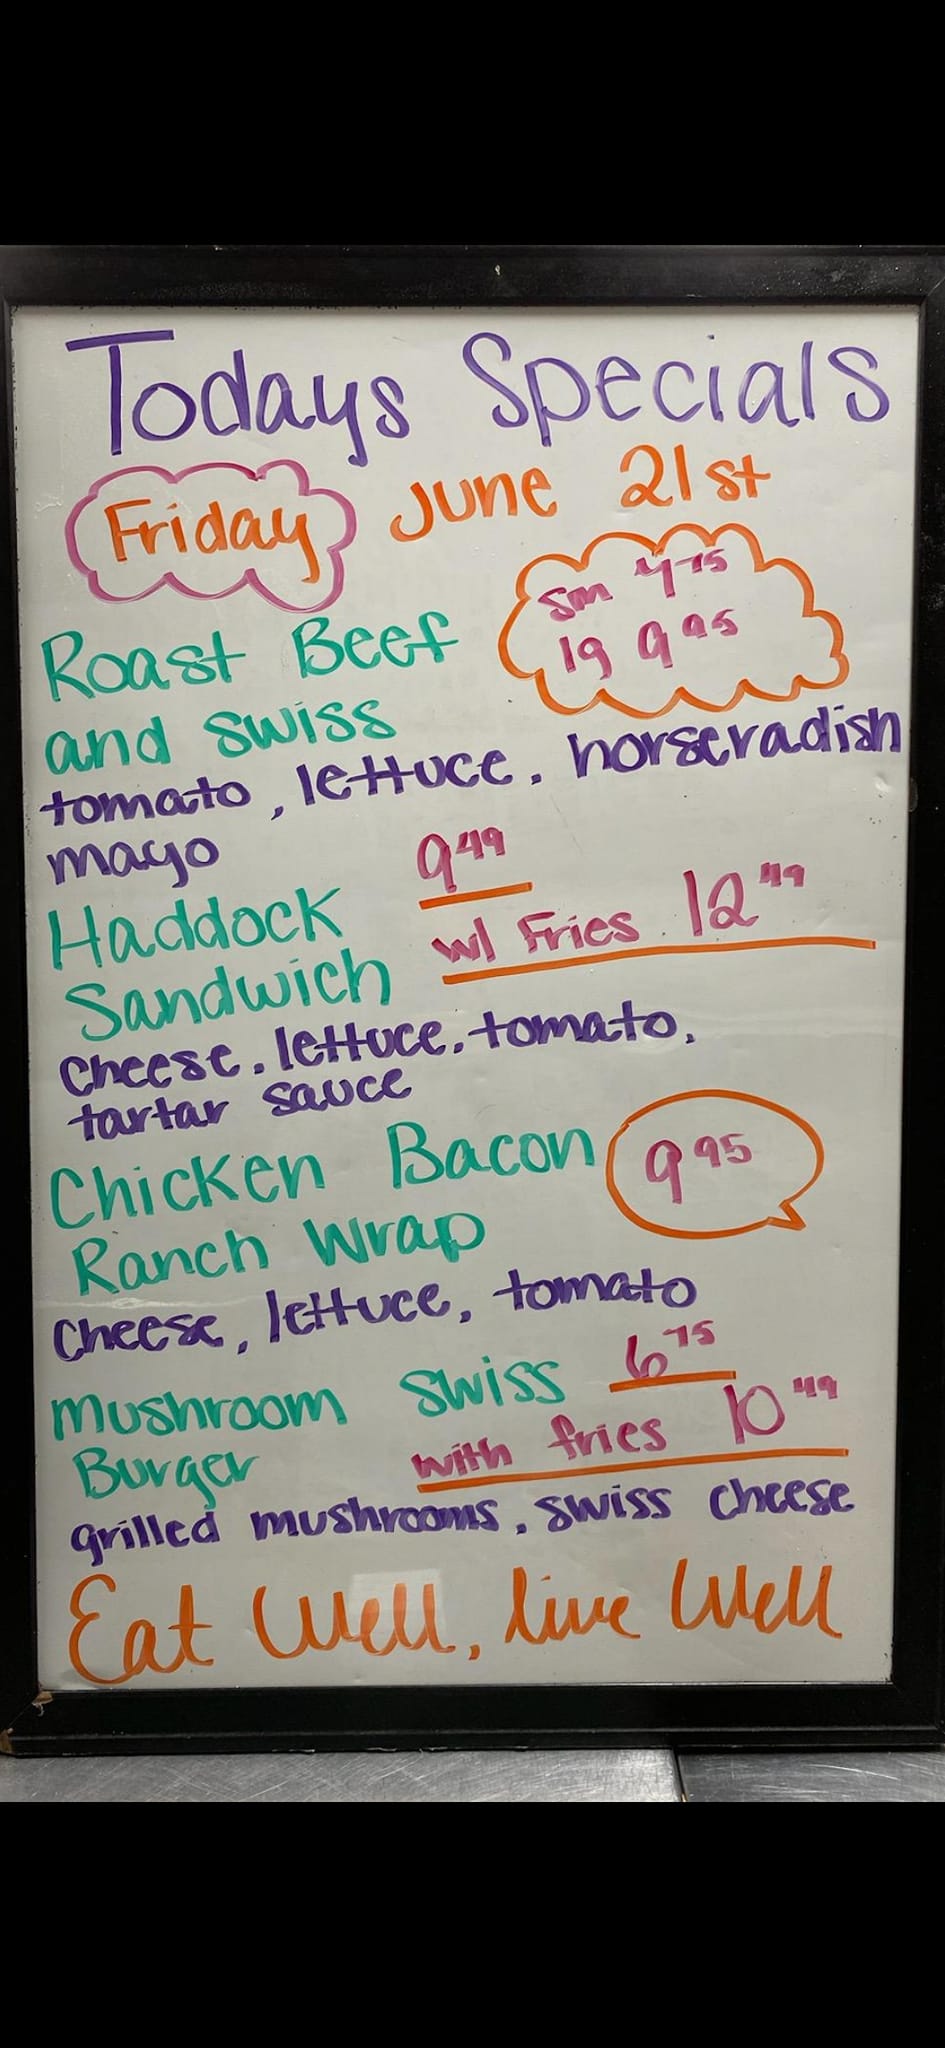 Todays Specials
Friday June 21st
Roast Beef sm 4 75
and swiss lg 9 95
tomato, lettuce, horseradish
mayo
Haddock 9 49
Sandwich w/ Fries 12 49
cheese, lettuce, tomato,
tartar sauce
Chicken Bacon 9 95
Ranch Wrap
cheese, lettuce, tomato
mushroom swiss 6 75
Burger with fries 10 49
grilled mushrooms, swiss cheese
Eat Well, live Well